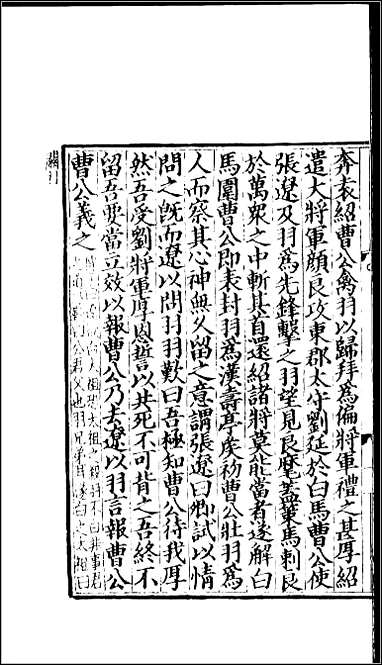 奔袁紹曹公禽羽以歸拜為偏將軍禮之甚厚紹
遣大將軍顏良攻東郡太守劉延於白馬曹公使
張遼及羽為先鋒擊之羽望見良麾蓋策馬刺良
於萬衆之中斬其首還紹諸將莫能當者遂解白
馬圍曹公即表封羽為漢壽亭侯初曹公壯羽為
人而察其心神無久留之意謂張遼曰卿試以情
問之既而遼以問羽羽歎曰吾極知曹公待我厚
然吾受劉將軍厚恩誓以共死不可背之吾終不
留吾要當立效以報曹公乃去遼以羽言報曹公
曹公義之
太祖恐太祖之殺羽不白非事君
公君父也羽兄弟耳遂白之太祖曰